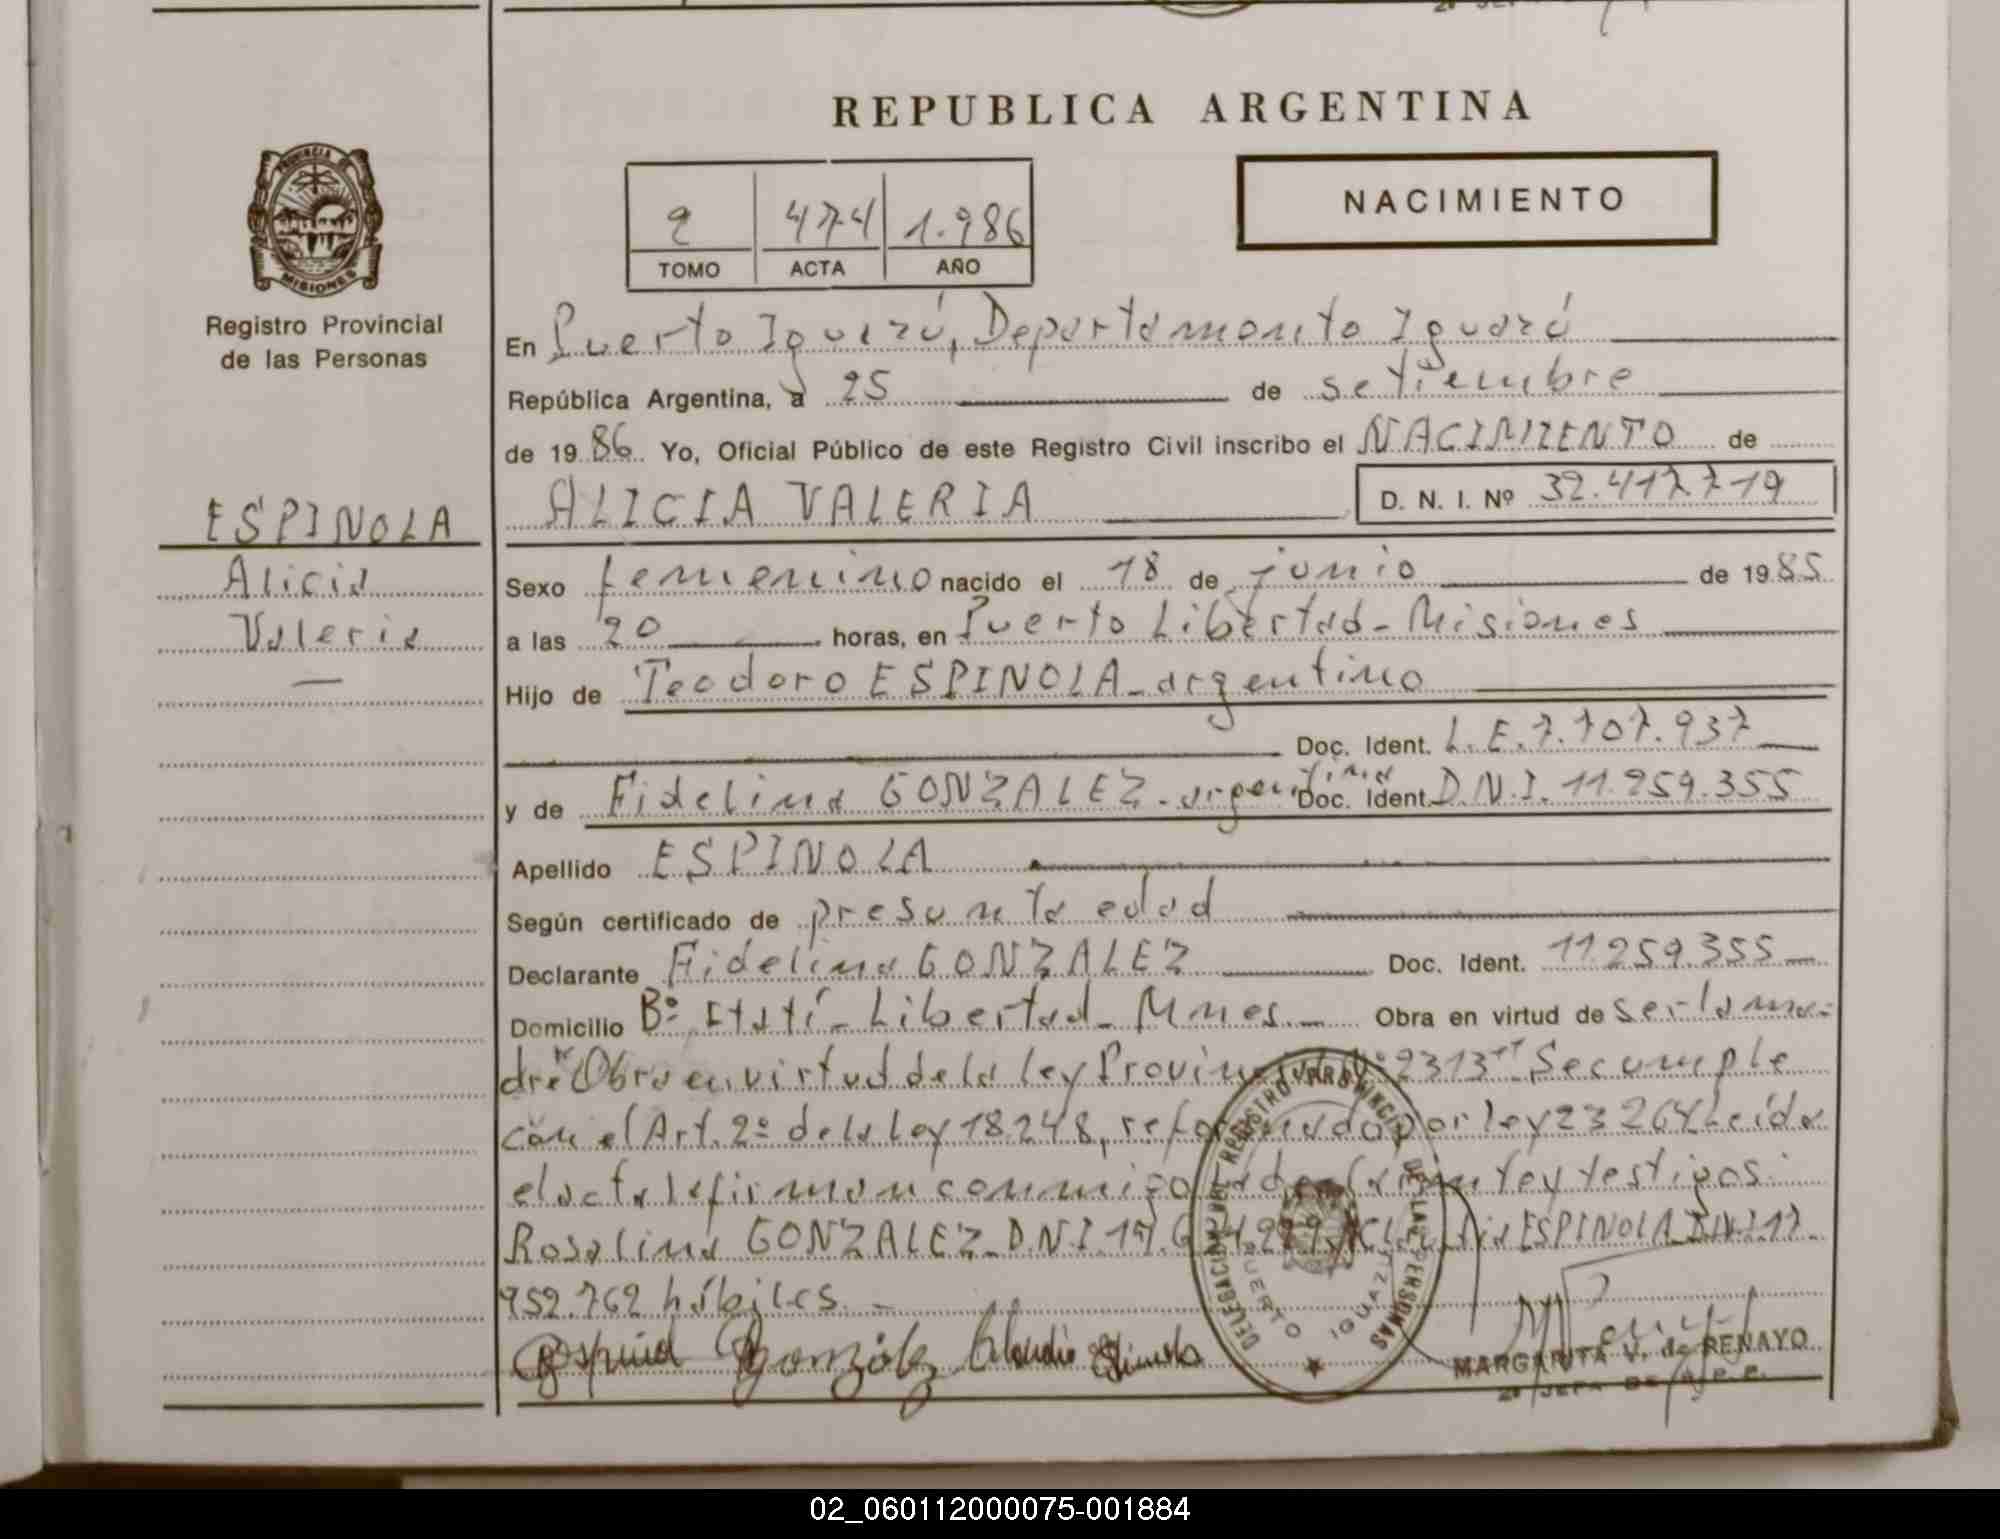 REPUBLICA ARGENTINA
NACIMIENTO
2 474 1.986
TOMO ACTA AÑO
PROVINCIA DE MISIONES
Registro Provincial
de las Personas
ESPINOLA
Alicia
Valeria
En Puerto Iguazú, Departamento Iguazú
República Argentina, a 25 de setiembre
de 1986. Yo, Oficial Público de este Registro Civil inscribo el NACIMIENTO de
ALICIA VALERIA D. N. I. Nº 32.417.719
Sexo femenino nacido el 18 de junio de 1985
a las 20 horas, en Puerto Libertad - Misiones
Hijo de Teodoro ESPINOLA - argentino
Doc. Ident. L.E. 7.707.937
y de Fidelina GONZALEZ - argentina Doc. Ident. D.N.I. 11.259.355
Apellido ESPINOLA
Según certificado de presunta edad
Declarante Fidelina GONZALEZ Doc. Ident. 11.259.355
Domicilio Bº Itatí - Libertad - Mnes. Obra en virtud de ser la ma-
dre "Obra en virtud de la ley Provincial Nº 2313" - Se cumple
con el Art. 2º de la Ley 18.248, reformada por ley 23264 Leída
el acta le firman conmigo la declarante y testigos:
Rosalina GONZALEZ D.N.I. ESPINOLA D.N.I 17.
952.762 hábiles. -
González Claudio Espinola
DELEGACION DEL REGISTRO PROVINCIAL DE LAS PERSONAS
PUERTO IGUAZU
MARGARITA V. de RENAYO
2ª JEFA DE R.P.P.
02_060112000075-001884